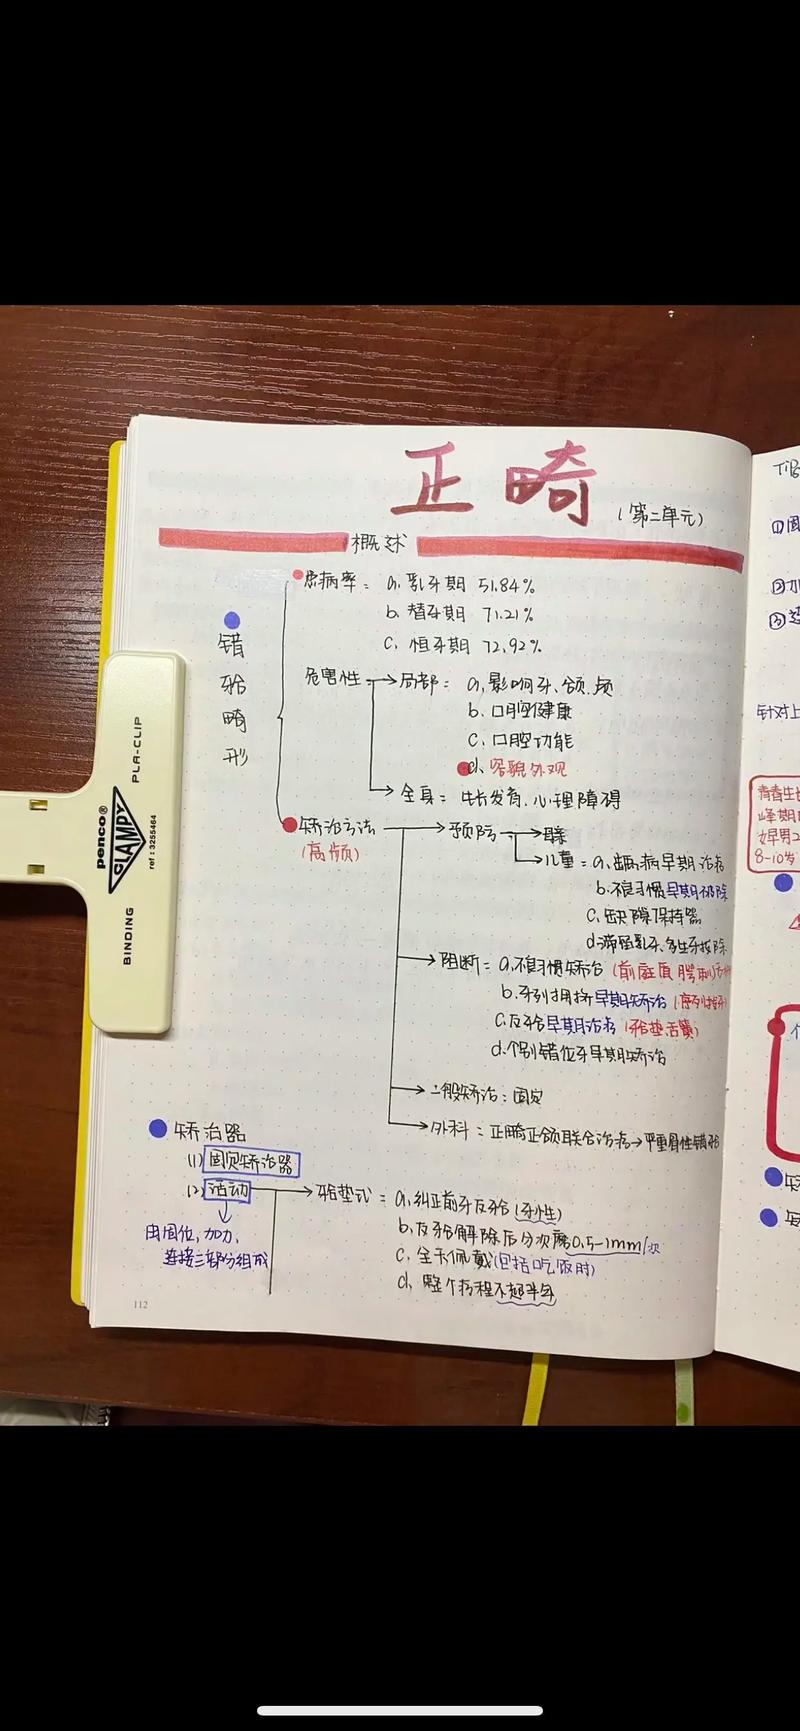 正畸
(第二单元)
概述
错𬌗畸形
患病率: a. 乳牙期 51.84%
b. 替牙期 71.21%
c. 恒牙期 72.92%
危害性 → 局部: a. 影响牙、颌、颅
b. 口腔健康
c. 口腔功能
d. 容貌外观
→ 全身: 生长发育、心理障碍
矫治方法 → 预防 →
(高频)
→ 儿童: a. 龋病早期治疗
b. 不良习惯早期破除
c. 缺隙保持器
d. 滞留乳牙、多生牙拔除
→ 阻断: a. 不良习惯矫治 (前庭盾 腭刺
b. 牙列拥挤早期矫治 (序列拔牙
c. 反𬌗早期治疗 (𬌗垫舌簧)
d. 个别错位牙早期矫治
→ 一般矫治: 固定
→ 外科: 正畸正颌联合治疗 → 严重骨性错𬌗
矫治器
(1) 固定矫治器
(2) 活动 → 𬌗垫式: a. 纠正前牙反𬌗 (牙性)
由固位, 加力,
连接三部分组成
b. 反𬌗解除后分次磨0.5-1mm/次
c. 全天佩戴(包括吃饭时)
d. 整个疗程不超半年
112
penco®
CLAMPY
PLA-CLIP
BINDING
ref : 3255464
①固
②加
③
针对上
青春生长
峰期
女早男2
8-10岁